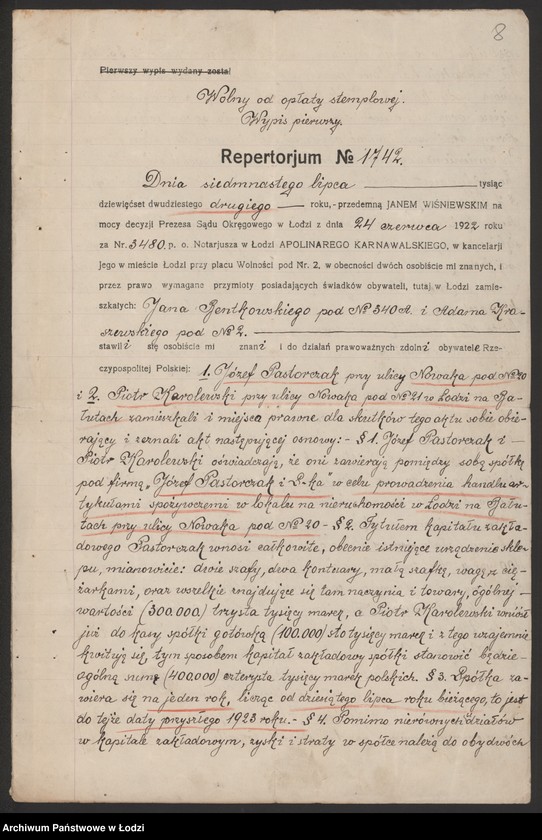 8
Pierwszy wypis wydany został
Wolny od opłaty stemplowej.
Wypis pierwszy.
Repertorjum № 1742.
Dnia siedmnastego lipca tysiąc
dziewięćset dwudziestego drugiego roku,-przedemną JANEM WIŚNIEWSKIM na
mocy decyzji Prezesa Sądu Okręgowego w Łodzi z dnia 24 czerwca 1922 roku
za Nr. 3480. p. o. Notarjusza w Łodzi APOLINAREGO KARNAWALSKIEGO, w kancelarji
jego w mieście Łodzi przy placu Wolności pod Nr. 2, w obecności dwóch osobiście mi znanych, i
przez prawo wymagane przymioty posiadających świadków obywateli, tutaj w Łodzi zamie-
szkałych: Jana Bentkowskiego pod № 340A. i Adama Kra-
szewskiego pod № 2.
stawili się osobiście mi znani i do działań prawoważnych zdolni obywatele Rze-
czypospolitej Polskiej: 1. Józef Pastorczak przy ulicy Nowaka pod № 20
i 2. Piotr Karolewski przy ulicy Nowaka pod № 21 w Łodzi na Ba-
łutach zamieszkali i miejsca prawne dla skutków tego aktu sobie obie-
rający i zeznali akt następującej osnowy: - § 1. Józef Pastorczak i -
Piotr Karolewski oświadczają, że oni zawierają pomiędzy sobą spółkę
pod firmą „Józef Pastorczak i S-ka" w celu prowadzenia handlu ar-
tykułami spożywczemi w lokalu na nieruchomości w Łodzi na Bału-
tach przy ulicy Nowaka pod № 20 - § 2. Tytułem kapitału zakła-
dowego Pastorczak wnosi całkowite, obecnie istniejące urządzenie skle-
pu, mianowicie: dwie szafy, dwa kontuary, małą szafkę, wagę z cię-
żarkami, oraz wszelkie znajdujące się tam naczynia i towary, ogólnej
wartości (300.000) trzysta tysięcy marek, a Piotr Karolewski wniósł
już do kasy spółki gotówką (100.000) sto tysięcy marek i z tego wzajemnie
kwitują się, tym sposobem kapitał zakładowy spółki stanowić będzie
ogólną sumę (400.000) czterysta tysięcy marek polskich. § 3. Spółka za-
wiera się na jeden rok, licząc od dziesiątego lipca roku bieżącego, to jest
do tejże daty przyszłego 1923 roku. - § 4. Pomimo nierównych działów
w kapitale zakładowym, zyski i straty w spółce należą do obydwóch
Archiwum Państwowe w Łodzi